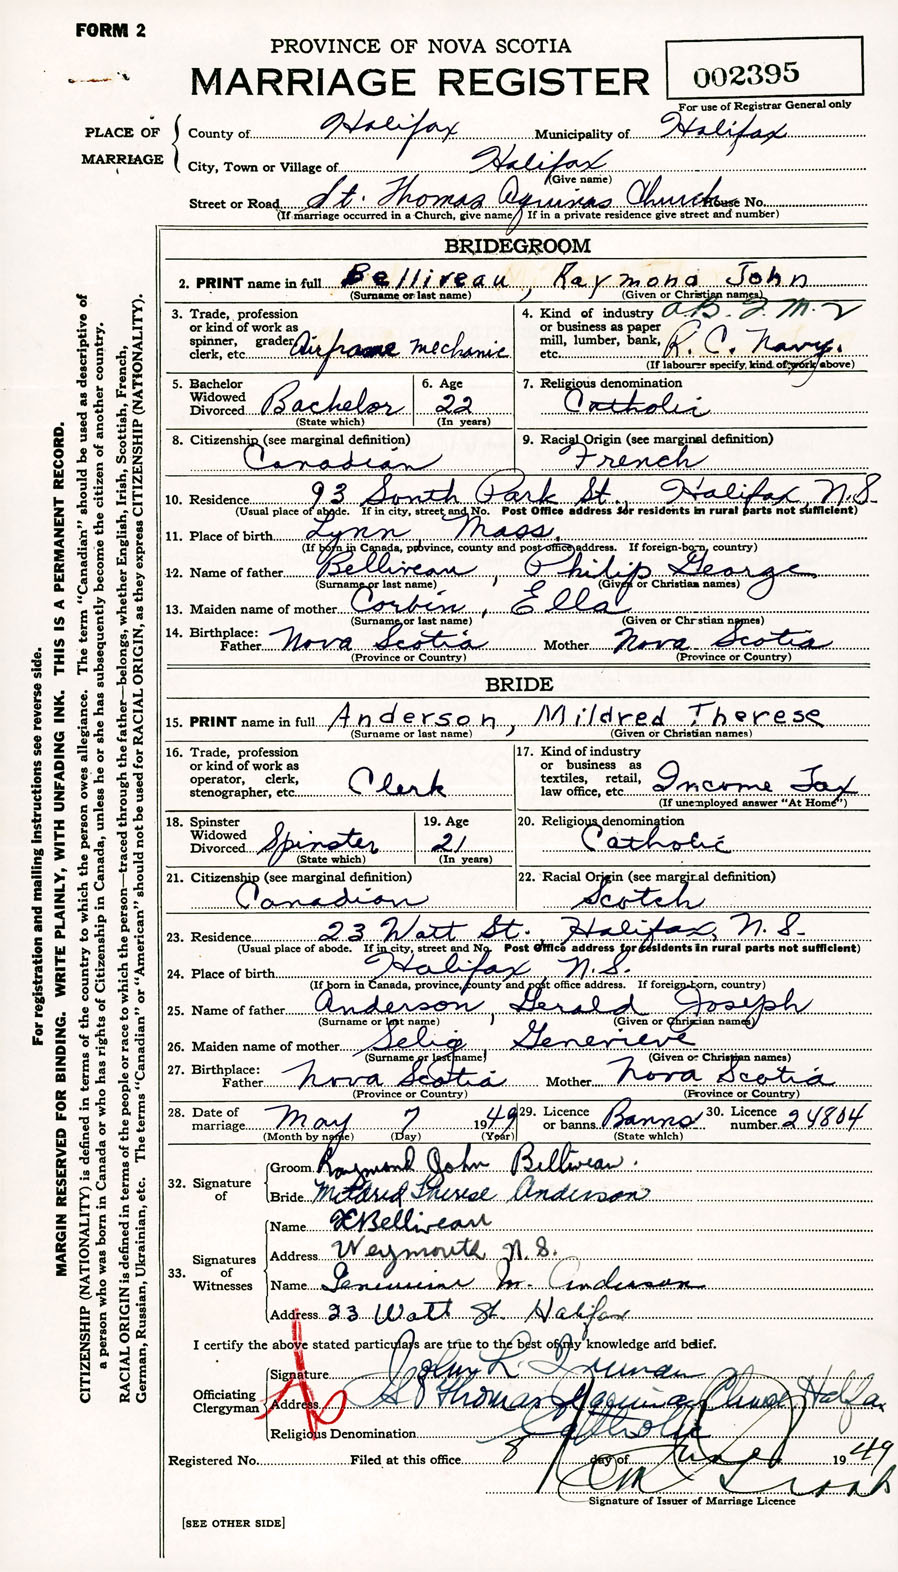 FORM 2
PROVINCE OF NOVA SCOTIA
MARRIAGE REGISTER
002395
For use of Registrar General only
PLACE OF MARRIAGE
County of Halifax Municipality of Halifax
City, Town or Village of Halifax
(Give name)
Street or Road St. Thomas Aquinas Church House No.
(If marriage occurred in a Church, give name) If in a private residence give street and number)
BRIDEGROOM
2. PRINT name in full Belliveau, Raymond John
(Surname or last name) (Given or Christian names)
3. Trade, profession or kind of work as spinner, grader, clerk, etc. Airframe mechanic
4. Kind of industry or business as paper mill, lumber, bank, etc. R. C. Navy.
(If labourer specify, kind of work above)
5. Bachelor Widowed Divorced Bachelor
(State which)
6. Age 22
(In years)
7. Religious denomination
Catholic
8. Citizenship (see marginal definition)
Canadian
9. Racial Origin (see marginal definition)
French
10. Residence 93 South Park St., Halifax N.S.
(Usual place of abode. If in city, street and No. Post Office address for residents in rural parts not sufficient)
11. Place of birth Lynn Mass.
(If born in Canada, province, county and post office address. If foreign-born, country)
12. Name of father Belliveau, Philip George
(Surname or last name) (Given or Christian names)
13. Maiden name of mother Corbin, Ella
(Surname or last name) (Given or Christian names)
14. Birthplace: Father Nova Scotia Mother Nova Scotia
(Province or Country) (Province or Country)
BRIDE
15. PRINT name in full Anderson, Mildred Therese
(Surname or last name) (Given or Christian names)
16. Trade, profession or kind of work as operator, clerk, stenographer, etc. Clerk
17. Kind of industry or business as textiles, retail, law office, etc. Income Tax
(If unemployed answer "At Home")
18. Spinster Widowed Divorced Spinster
(State which)
19. Age 21
(In years)
20. Religious denomination
Catholic
21. Citizenship (see marginal definition)
Canadian
22. Racial Origin (see marginal definition)
Scotch
23. Residence 23 Watt St. Halifax, N.S.
(Usual place of abode. If in city, street and No. Post Office address for residents in rural parts not sufficient)
24. Place of birth Halifax, N.S.
(If born in Canada, province, county and post office address. If foreign-born, country)
25. Name of father Anderson, Gerald Joseph
(Surname or last name) (Given or Christian names)
26. Maiden name of mother Selig Genevieve
(Surname or last name) (Given or Christian names)
27. Birthplace: Father Nova Scotia Mother Nova Scotia
(Province or Country) (Province or Country)
28. Date of marriage May 7 1949
(Month by name) (Day) (Year)
29. Licence or banns Banns
(State which)
30. Licence number 24804
32. Signature of
Groom Raymond John Belliveau.
Bride Mildred Therese Anderson
33. Signatures of Witnesses
Name Belliveau
Address Weymouth N.S.
Name M. Anderson
Address 23 Watt St. Halifax
I certify the above stated particulars are true to the best of my knowledge and belief.
Officiating Clergyman
Signature John L.
Address St Thomas Aquinas Church Halifax
Religious Denomination Catholic
Registered No. Filed at this office 8 day of June 1949
Signature of Issuer of Marriage Licence
[SEE OTHER SIDE]
For registration and mailing instructions see reverse side.
MARGIN RESERVED FOR BINDING. WRITE PLAINLY, WITH UNFADING INK. THIS IS A PERMANENT RECORD.
CITIZENSHIP (NATIONALITY) is defined in terms of the country to which the person owes allegiance. The term "Canadian" should be used as descriptive of
a person who was born in Canada or who has rights of Citizenship in Canada, unless he or she has subsequently become the citizen of another country.
RACIAL ORIGIN is defined in terms of the people or race to which the person—traced through the father—belongs, whether English, Irish, Scottish, French,
German, Russian, Ukrainian, etc. The terms "Canadian" or "American" should not be used for RACIAL ORIGIN, as they express CITIZENSHIP (NATIONALITY).